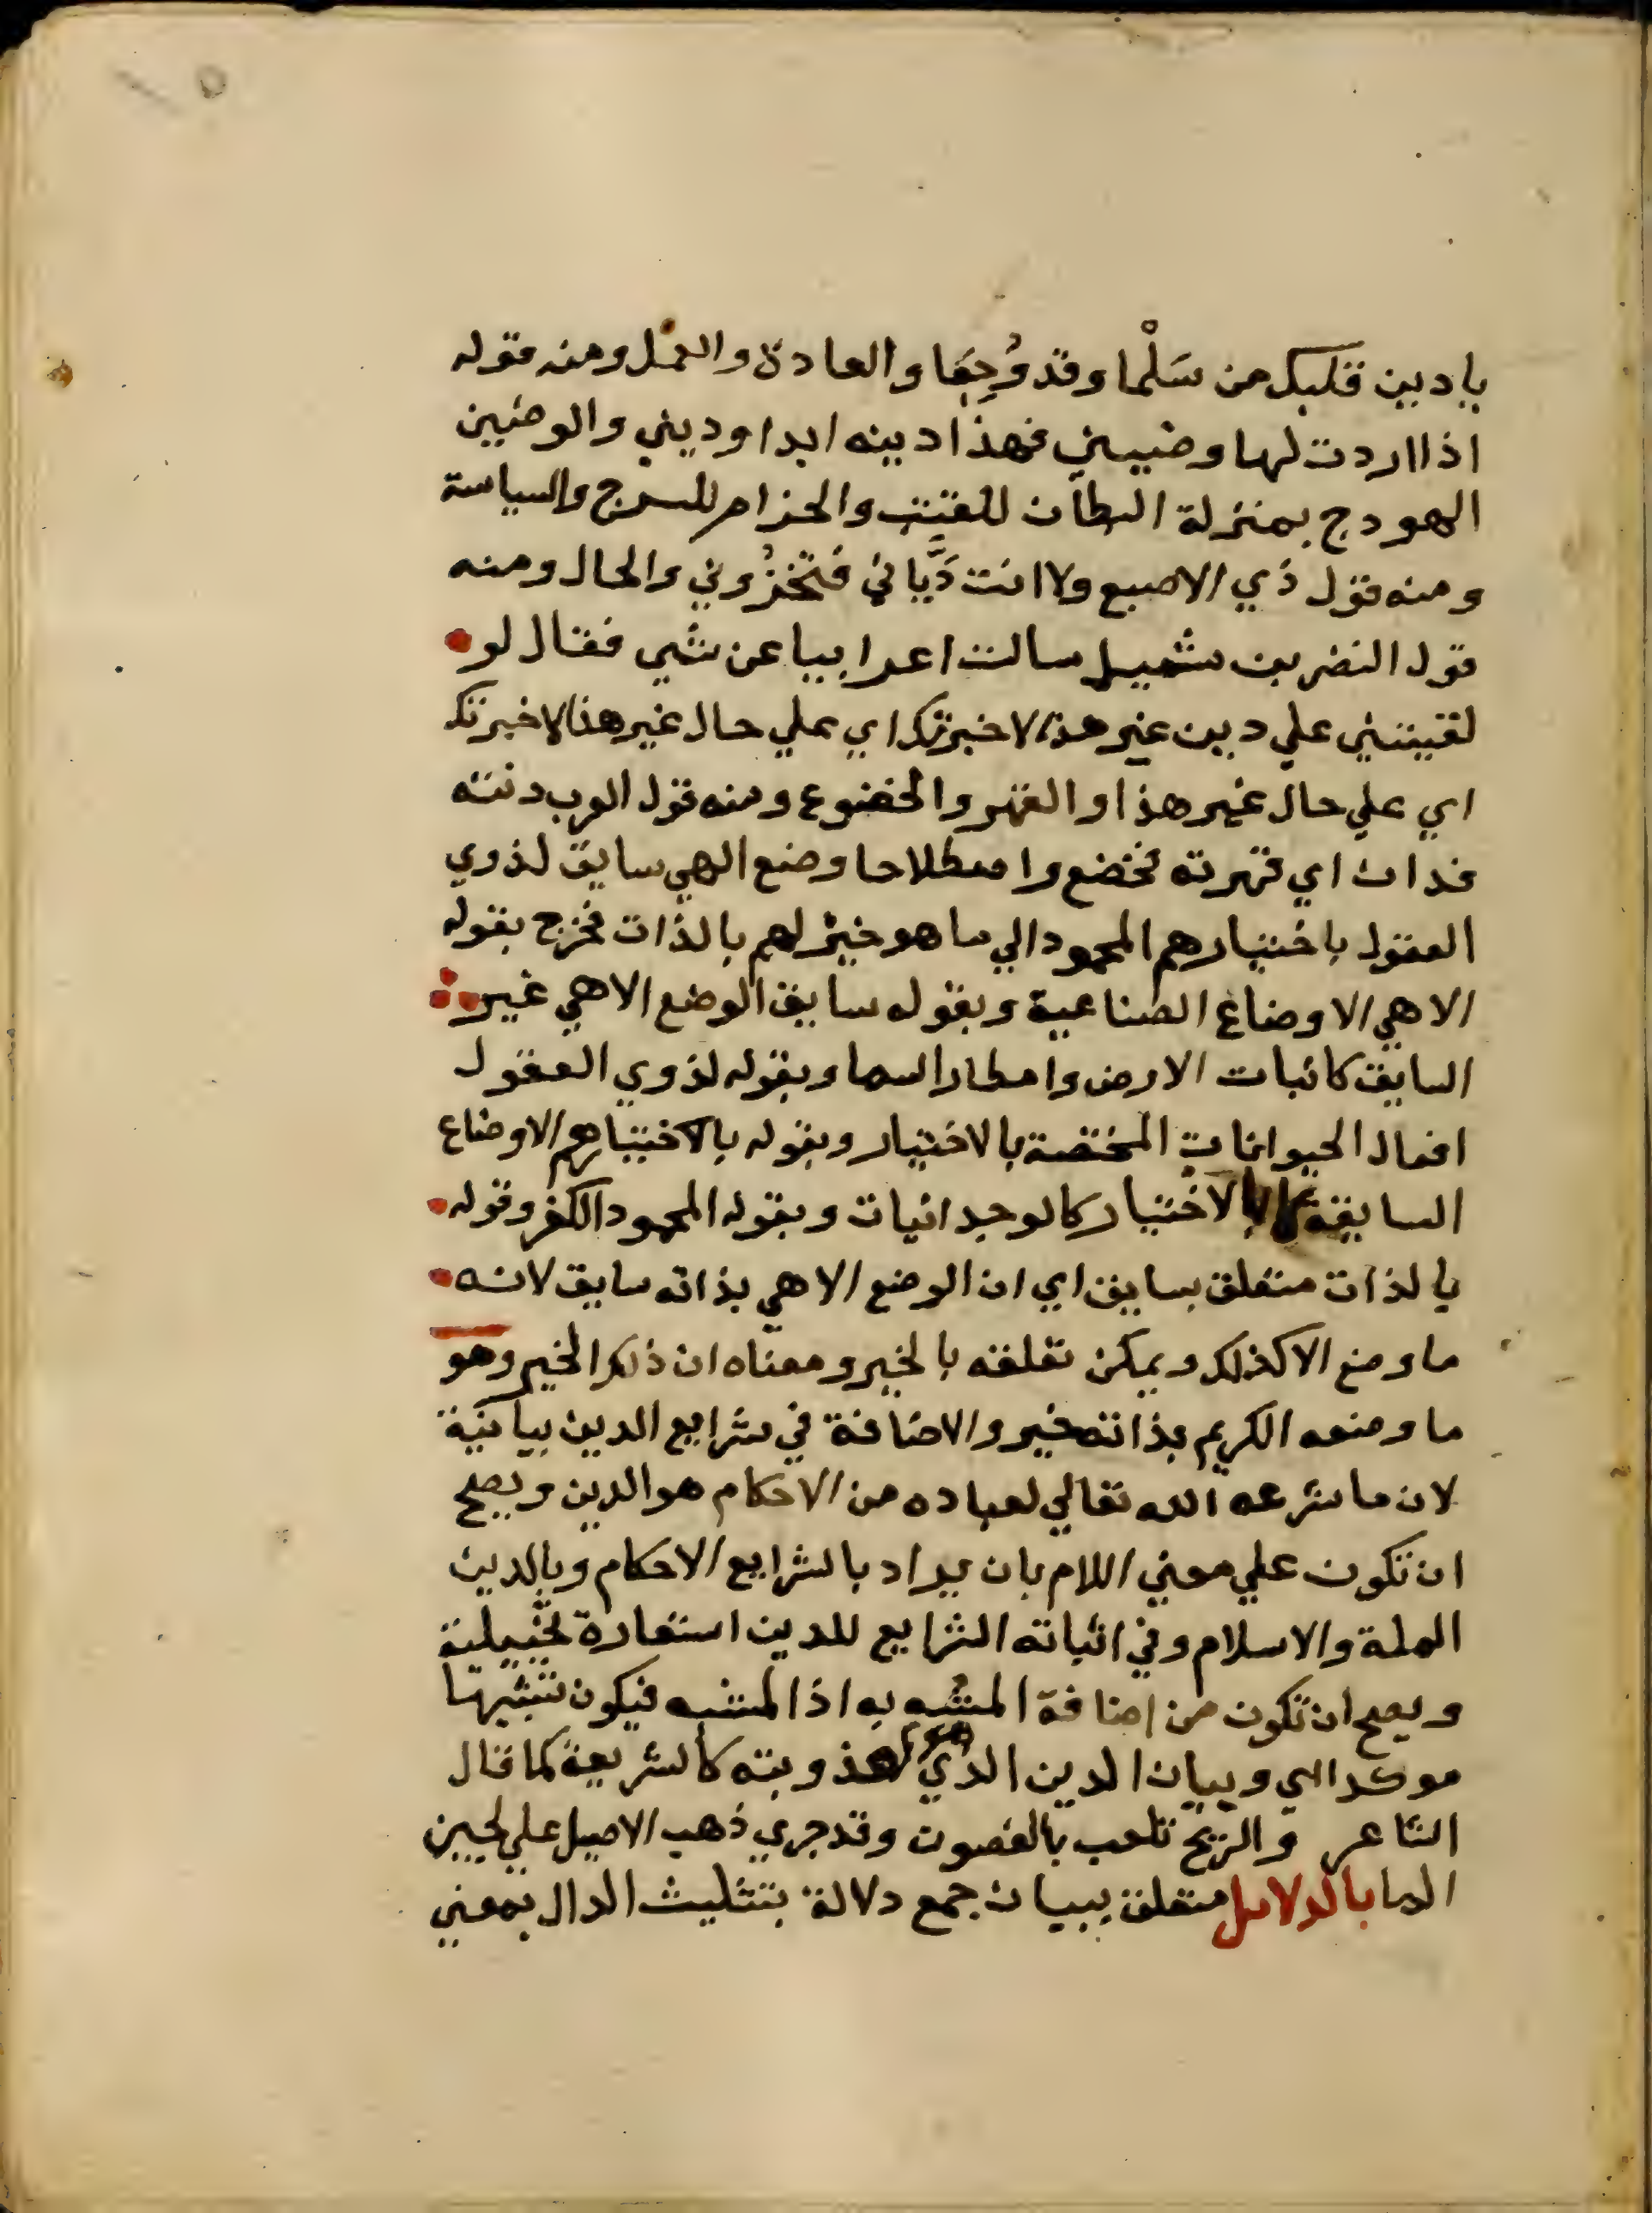 يادين قلبك من سَلْما وقد وُجِعَا والعادة والعمل ومنه قوله
اذا اردت لها وضيني فهذا دينه ابدا وديني والوضين
الهودج بمنزلة البطان للقتب والحزام للسرج والسياسة
ومنه قول ذي الاصبع ولا انت دَيَّاني فتخزُوني والحال ومنه
قول النضر بن شميل سالت اعرابيا عن شي فقال لو
لقيتني علي دين غير هذا لاخبرتك اي علي حال غير هذا لاخبرتك
اي علي حال غير هذا والقهر والخضوع ومنه قول العرب دنته
فدان اي قهرته فخضع واصطلاحا وضع الهي سايق لذوي
العقول باختيارهم المحمود الي ما هو خير لهم بالذات فخرج بقوله
الاهي الاوضاع الصناعية وبقوله سايق الوضع الاهي غير
السايق كانبات الارض وامطار السما وبقوله لذوي العقول
افعال الحيوانات المختصة بالاختيار وبقوله بالاختيارهم الاوضاع
السايقة لا بالاختيار كالوجدانيات وبقوله المحمود الكفر وقوله
بالذات متعلق بسايق اي ان الوضع الاهي بذاته سايق لانه
ما وضع الا كذلك ويمكن تعلقه بالخير ومعناه ان ذلك الخير وهو
ما وضعه الكريم بذاته خير والاضافة في شرايع الدين بيانية
لان ما شرعه الله تعالي لعباده من الاحكام هو الدين ويصح
ان تكون علي معني اللام بان يراد بالشرايع الاحكام وبالدين
الملة والاسلام وفي اثباته الشرايع للدين استعارة تخييلية
ويصح ان تكون من اضافة المشبه به اذا المشبه فيكون تشبيها
موكدا اي وبيان الدين الذي هو لعذوبته كالشريعة كما قال
الشاعر والريح تلعب بالغصون وقد جري ذهب الاصيل علي لجين
الما بالدلايل متعلق ببيان جمع دلالة بتثليث الدال بمعني